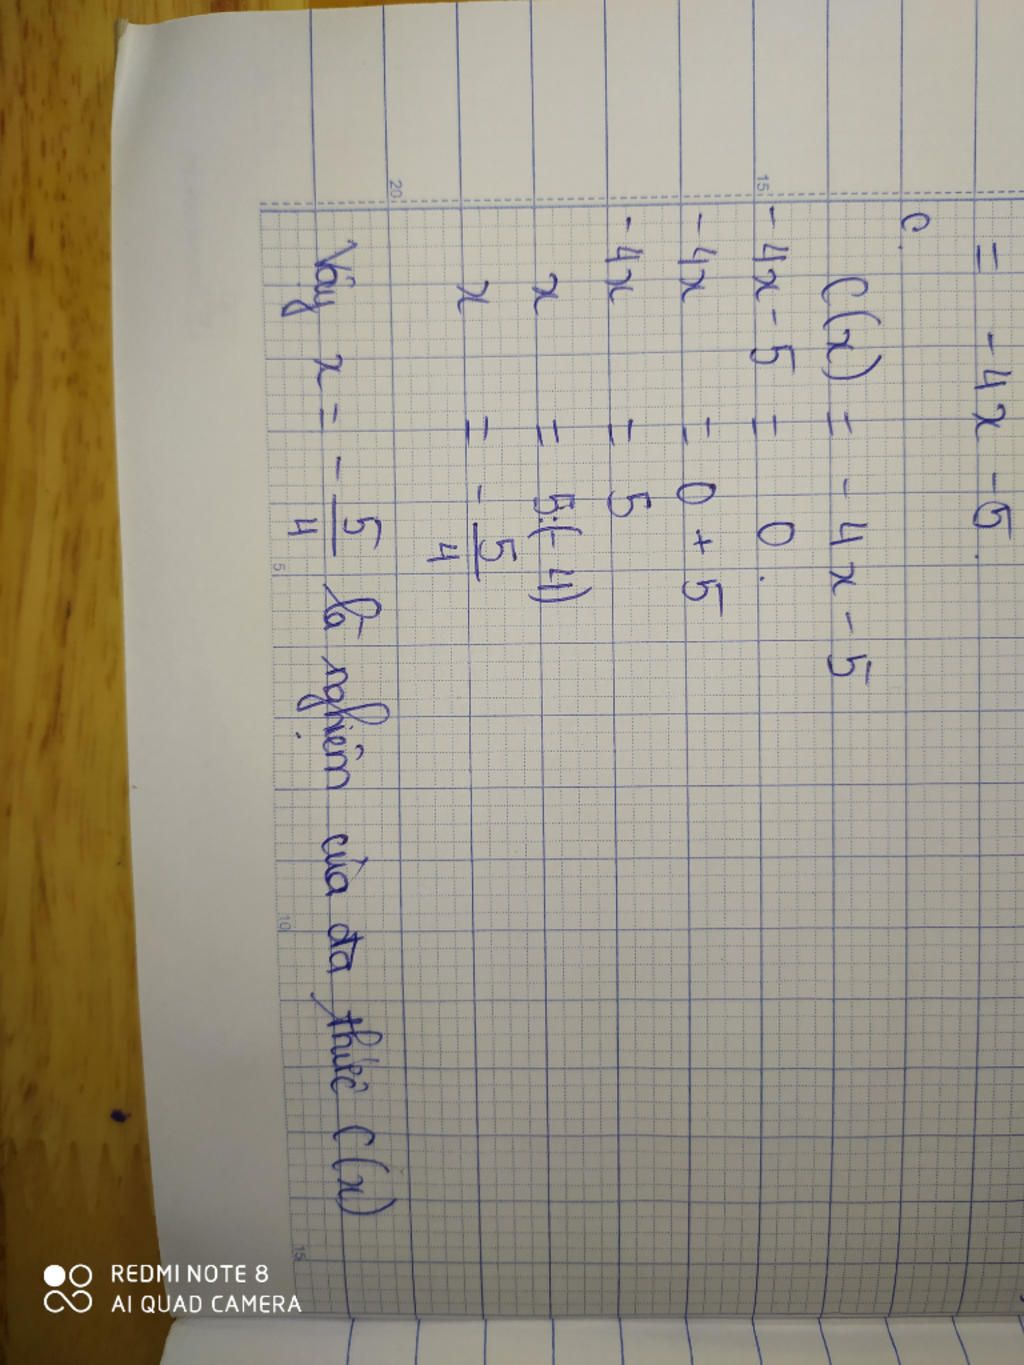 = -4x -5.
c.
C(x) = -4x-5
-4x-5 = 0.
-4x = 0+5
-4x = 5
x = 5:(-4)
x = -5/4
Vậy x = -5/4 là nghiệm của đa thức C(x)
15
20
5
10
15
REDMI NOTE 8
AI QUAD CAMERA